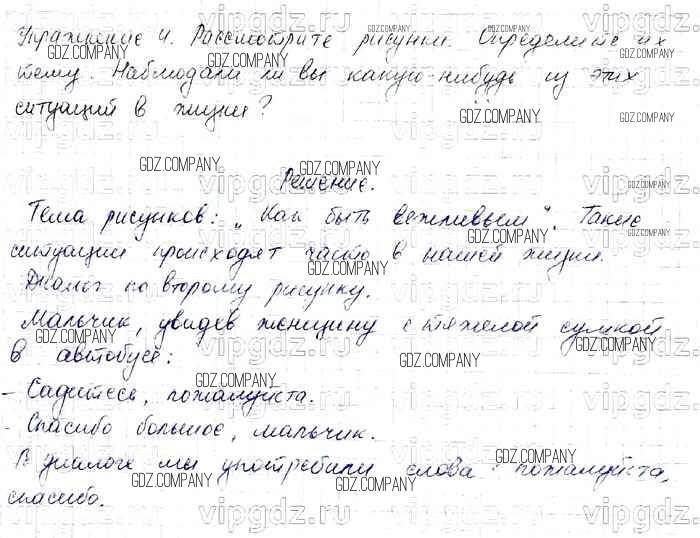 Упражнение 4. Рассмотрите рисунки. Определите их
тему. Наблюдали ли вы какую-нибудь из этих
ситуаций в жизни?
Решение.
Тема рисунков: „Как быть вежливым“. Такие
ситуации происходят часто в нашей жизни.
Диалог по второму рисунку.
Мальчик, увидев женщину с тяжелой сумкой
в автобусе:
- Садитесь, пожалуйста.
- Спасибо большое, мальчик.
В диалоге мы употребили слова пожалуйста,
спасибо.
GDZ.COMPANY
vipgdz.ru